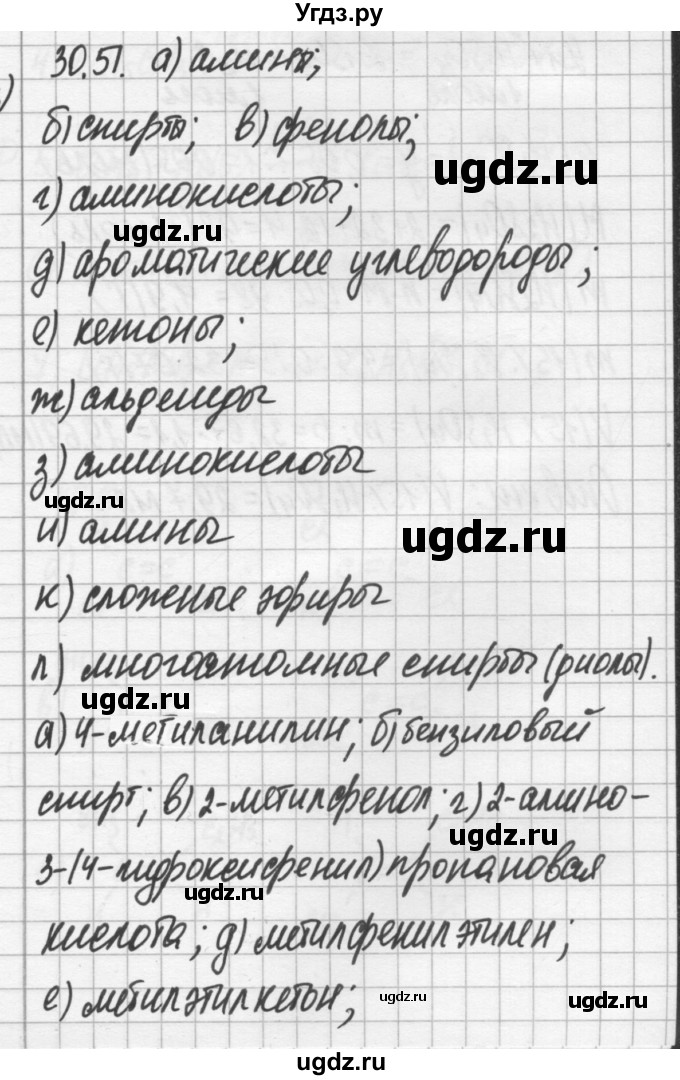 Угдз.ру
30.51. а) амины;
б) спирты; в) фенолы;
ugdz.ru
г) аминокислоты;
ugdz.ru
д) ароматические углеводороды;
е) кетоны;
ж) альдегиды
з) аминокислоты
ugdz.ru
и) амины
ugdz.ru
к) сложеные эфиры
л) многоатомные спирты (диолы).
ugdz.ru
а) 4-метиланилин; б) бензиловый
спирт; в) 2-метилфенол; г) 2-амино-
ugdz.ru
3-(4-гидроксифенил) пропановая
ugdz.ru
кислота; д) метилфенилэтилен;
е) метилэтилкетон;
ugdz.ru
ugdz.ru
ugdz.ru
ugdz.ru